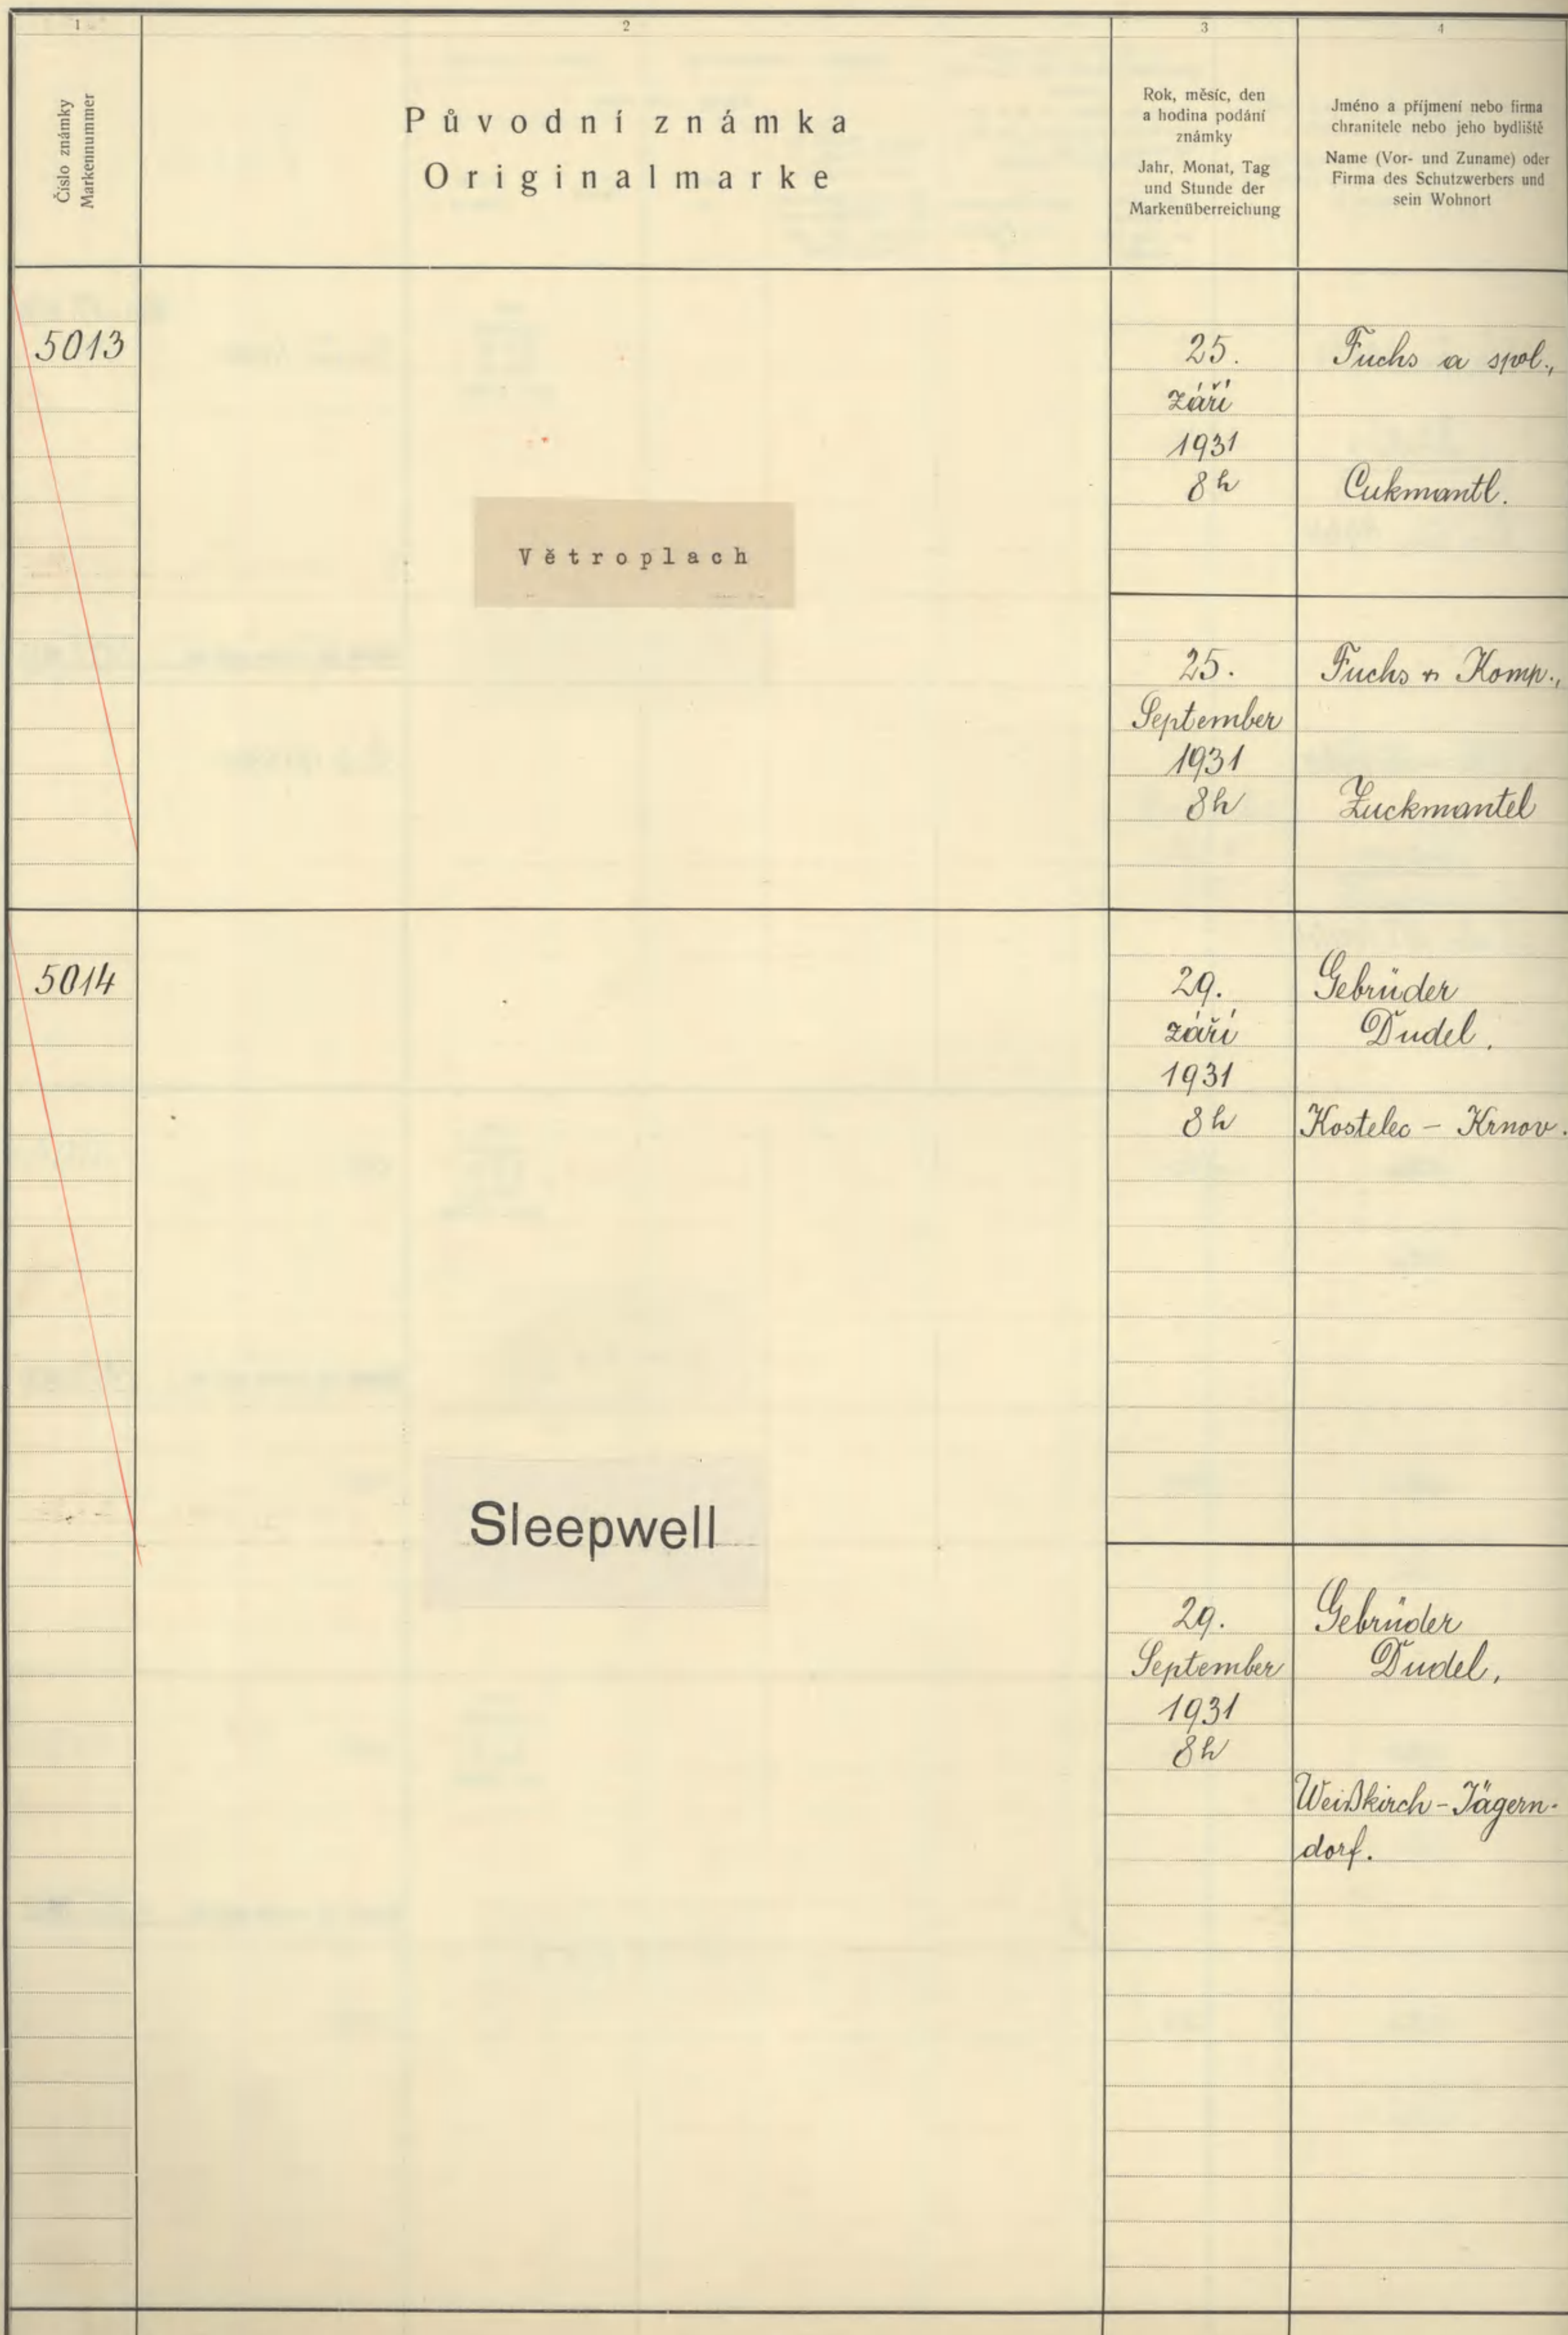 1
2
3
4
Číslo známky
Markennummer
Původní známka
Originalmarke
Rok, měsíc, den
a hodina podání
známky
Jahr, Monat, Tag
und Stunde der
Markenüberreichung
Jméno a příjmení nebo firma
chranitele nebo jeho bydliště
Name (Vor- und Zuname) oder
Firma des Schutzwerbers und
sein Wohnort
5013
Větroplach
25.
září
1931
8h
Fuchs a spol.,
Cukmantl.
25.
September
1931
8h
Fuchs u Komp.,
Zuckmantel
5014
Sleepwell
29.
září
1931
8h
Gebrüder
Dudel.
Kostelec - Krnov.
29.
September
1931
8h
Gebrüder
Dudel.
Weißkirch - Jägern-
dorf.